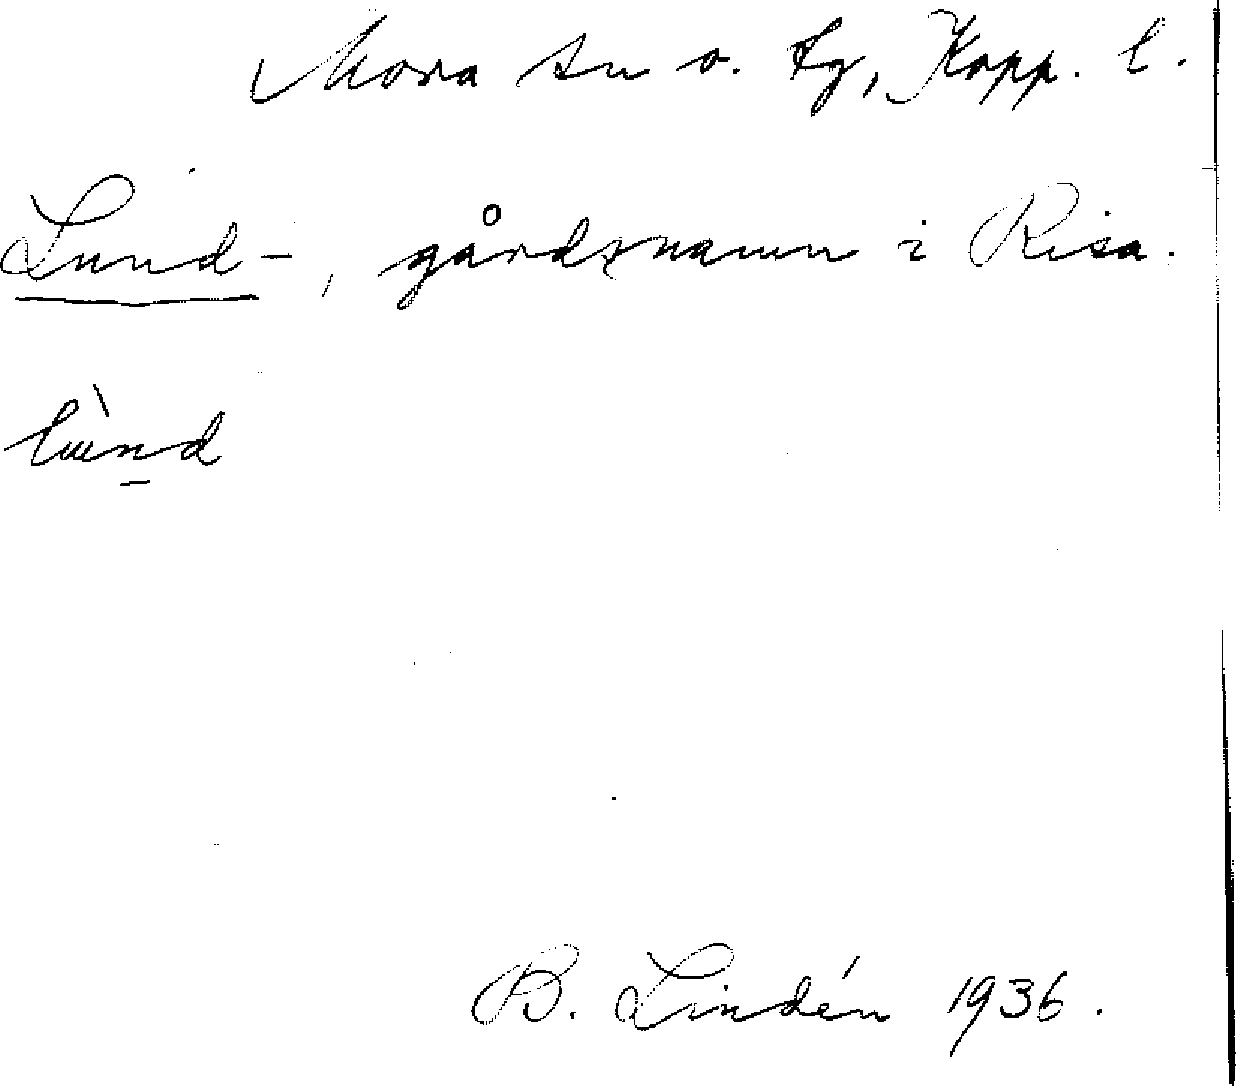 Mora sn o. tg, Kopp. l.
Lund-, gårdsnamn i Risa.
lùnd
B. Lindén 1936.